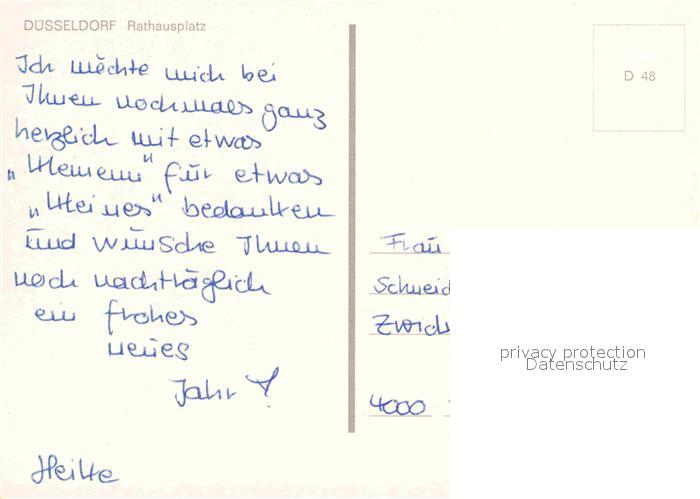 DÜSSELDORF Rathausplatz
D 48
Ich möchte mich bei
Ihnen nochmals ganz
herzlich mit etwas
„Kleinem" für etwas
„Kleines" bedanken
und wünsche Ihnen
noch nachträglich
ein frohes
neues
Jahr!
Heike
Frau
Schneid
Zwick
4000
privacy protection
Datenschutz